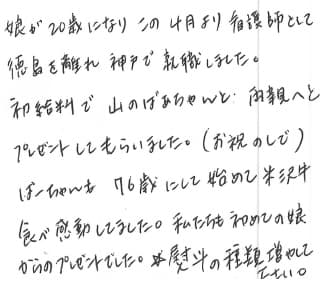 娘が20歳になり この4月より看護師として
徳島を離れ 神戸で就職しました。
初給料で 山のばあちゃんと 両親へと
プレゼントしてもらいました。(お祝のしで)
ばーちゃんも 76歳にして始めて米沢牛
食べ感動してました。私たちも初めての娘
からのプレゼントでした。熨斗の種類増やして
下さい。